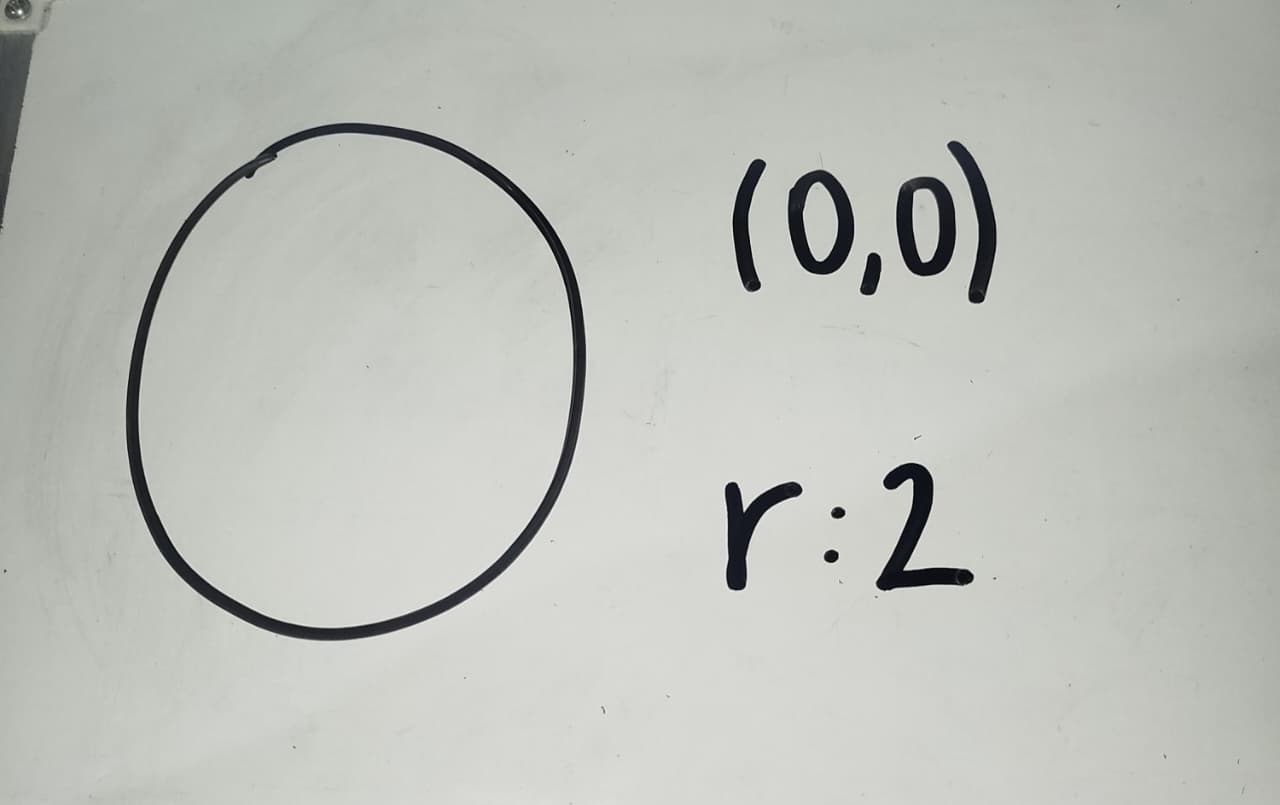 (0,0)
r:2